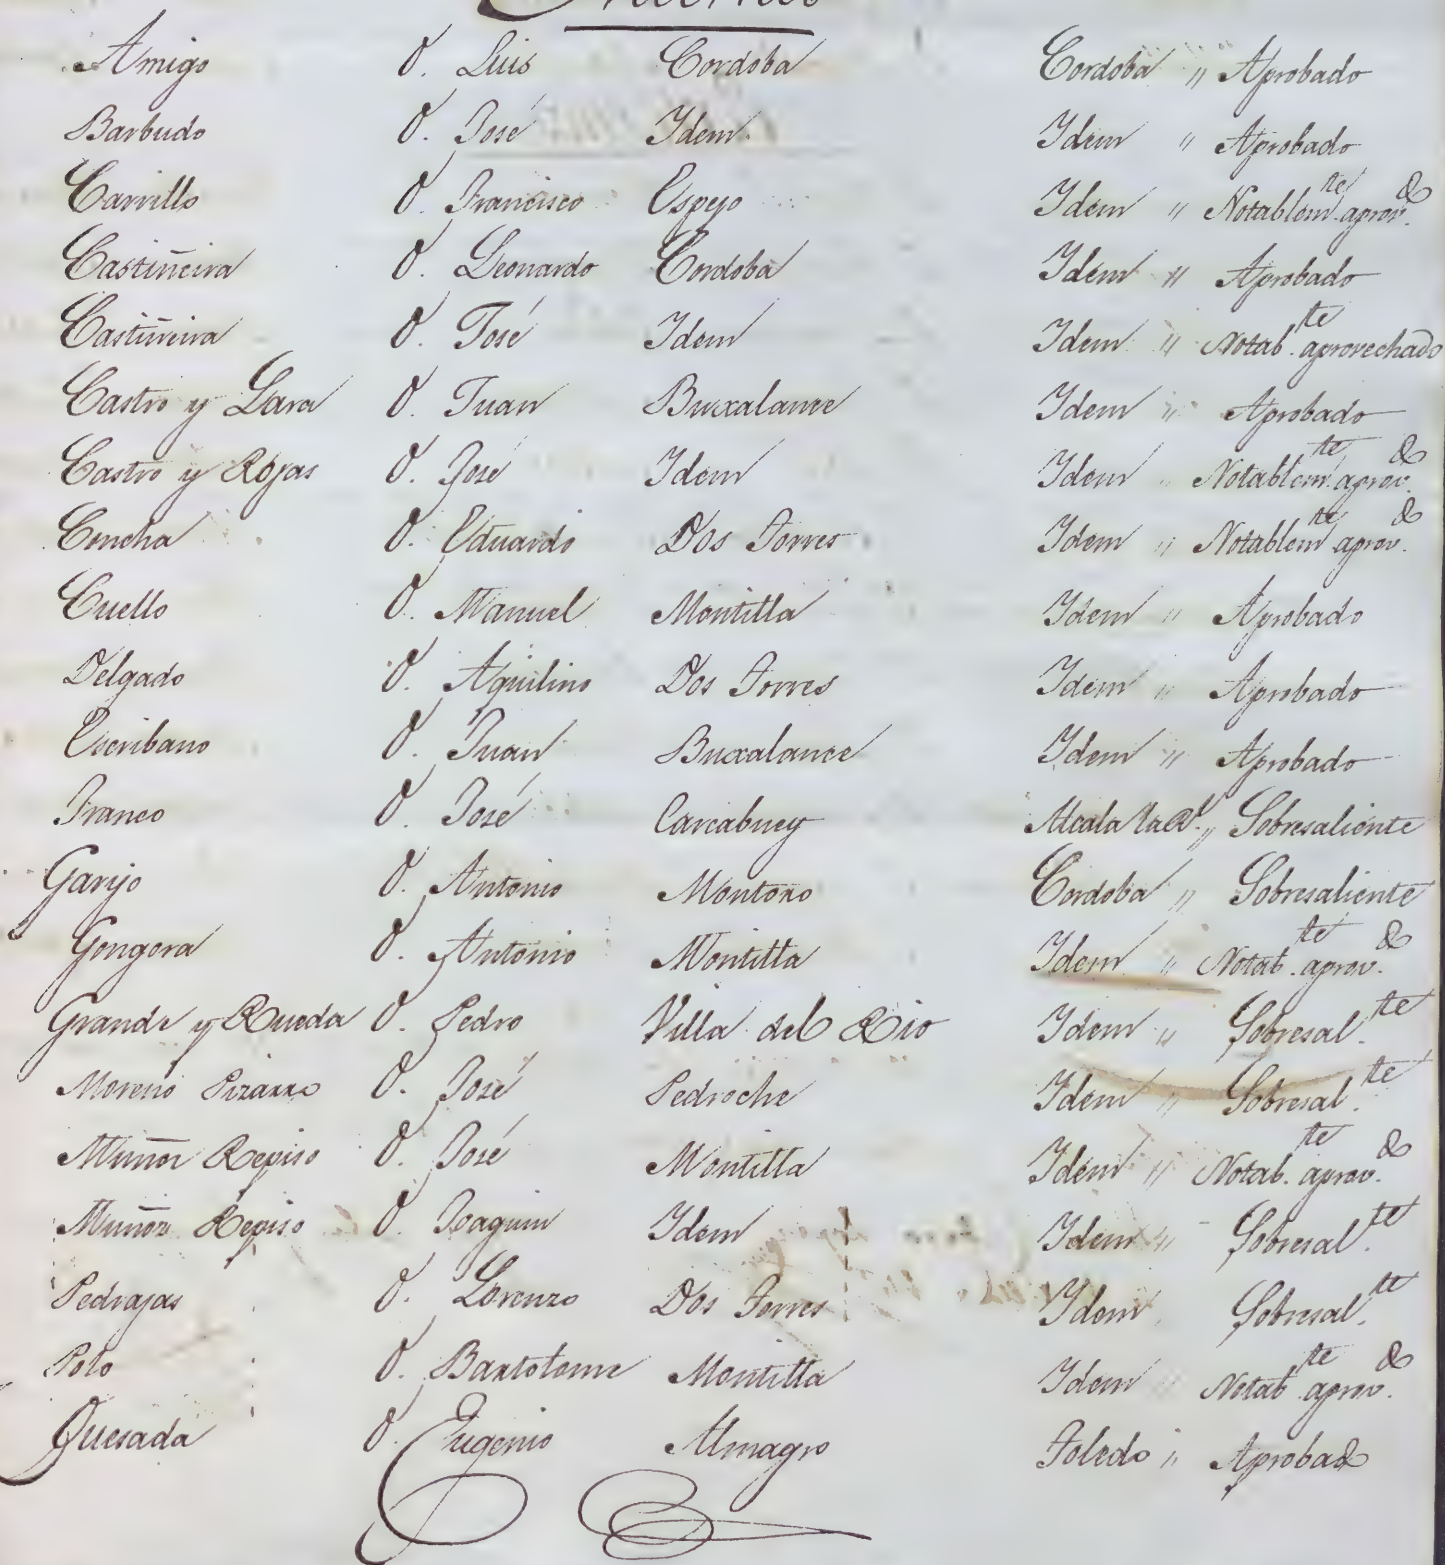 Amigo D. Luis Cordoba Cordoba " Aprobado
Barbudo D. José Idem Idem " Aprobado
Carrillo D. Francisco Espejo Idem " Notablem.te aprov.do
Castiñeira D. Leonardo Cordoba Idem " Aprobado
Castiñeira D. José Idem Idem " Notab.te aprovechado
Castro y Lara D. Juan Buxalance Idem " Aprobado
Castro y Rojas D. José Idem Idem " Notablem.te aprov.do
Concha D. Eduardo Dos Torres Idem " Notablem.te aprov.do
Cuello D. Manuel Montilla Idem " Aprobado
Delgado D. Aquilino Dos Torres Idem " Aprobado
Escribano D. Juan Buxalance Idem " Aprobado
Franco D. José Carcabuey Alcala la R.l " Sobresaliente
Garijo D. Antonio Montoro Cordoba " Sobresaliente
Gongora D. Antonio Montilla Idem " Notab.te aprov.do
Grande y Rueda D. Pedro Villa del Rio Idem " Sobresal.te
Moreno Pizarro D. José Pedroche Idem " Sobresal.te
Muñoz Repiso D. José Montilla Idem " Notab.te aprov.do
Muñoz Repiso D. Joaquin Idem Idem " Sobresal.te
Pedrajas D. Lorenzo Dos Torres Idem Sobresal.te
Polo D. Bartolome Montilla Idem " Notab.te aprov.do
Quesada D. Eugenio Almagro Toledo " Aprobado